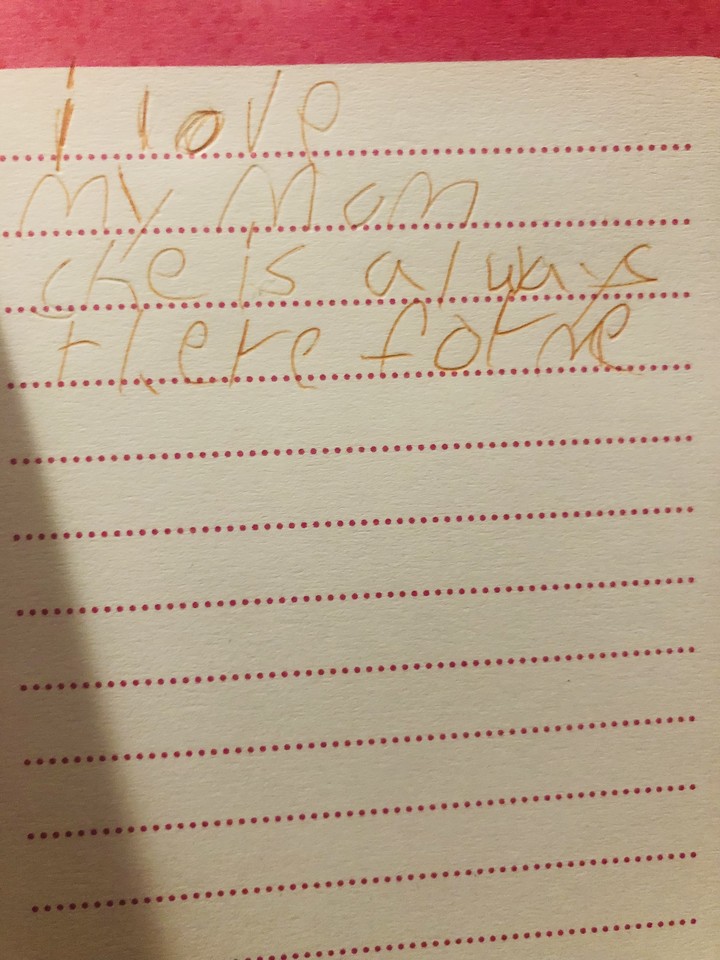 i love
my Mom
she is always
there for me